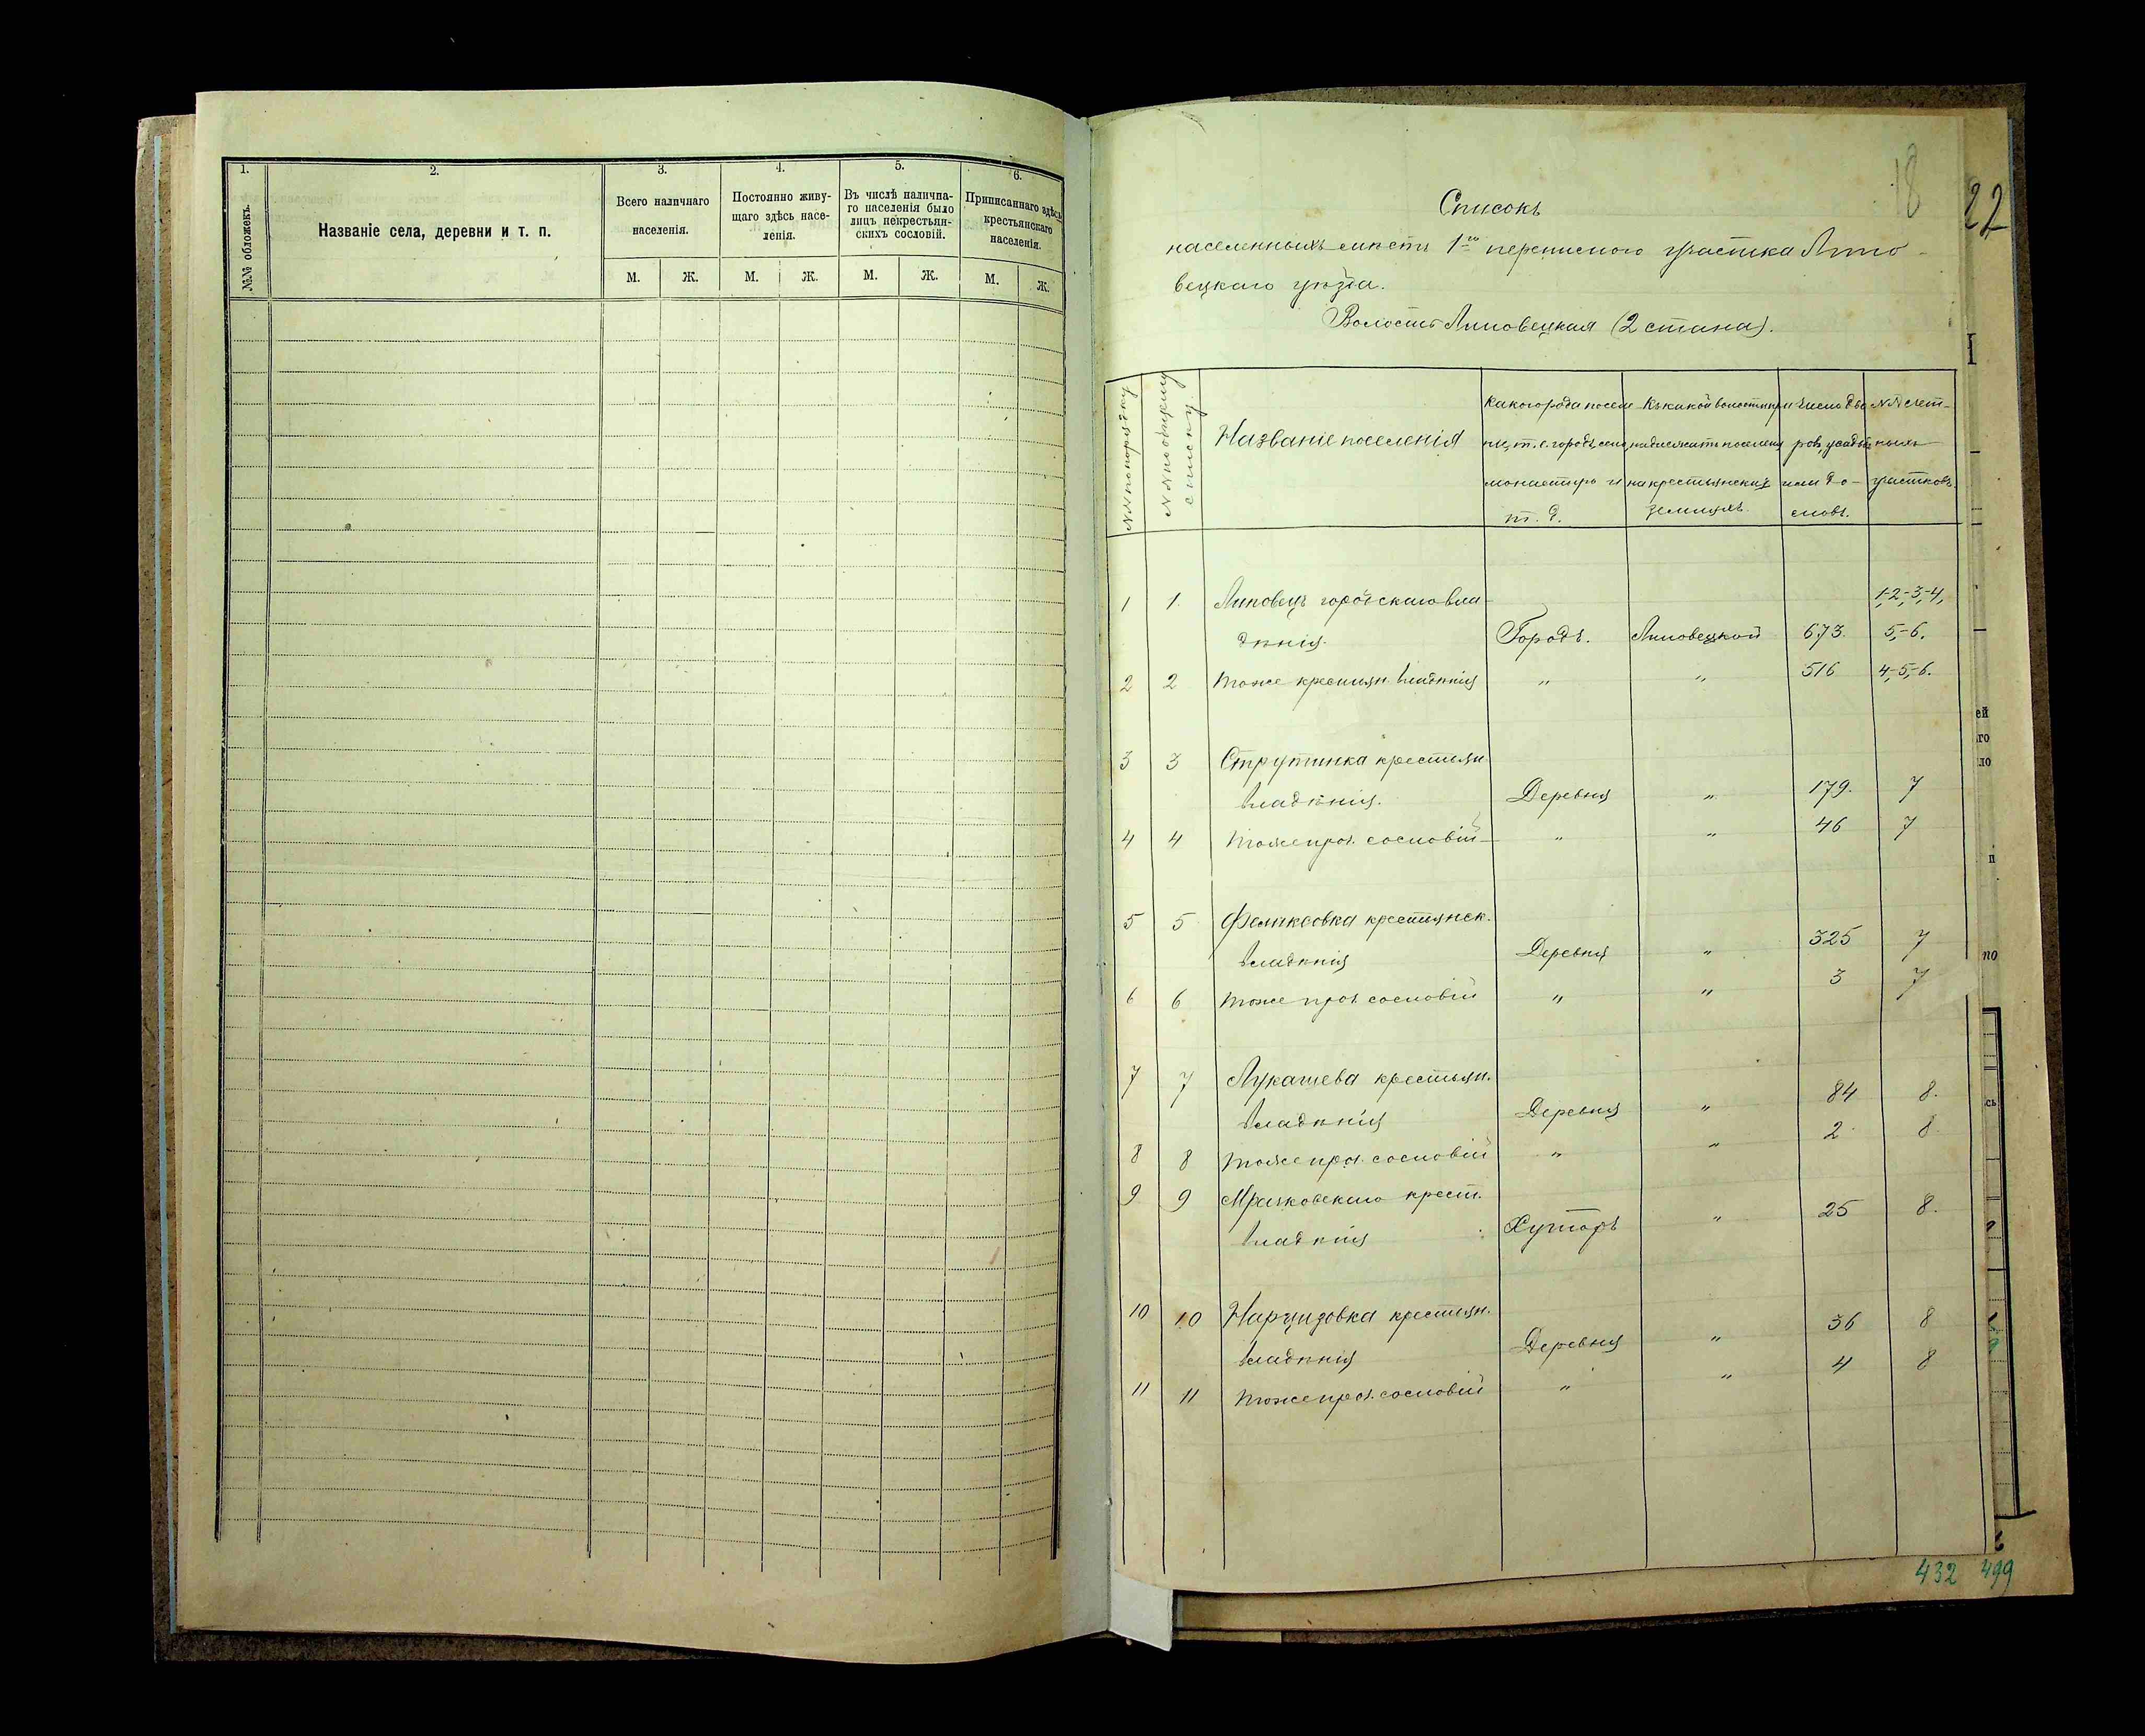 1.
№№ обложекъ.
2.
Названіе села, деревни и т. п.
3.
Всего наличнаго
населенія.
М.
Ж.
4.
Постоянно живу-
щаго здѣсь насе-
ленія.
М.
Ж.
5.
Въ числѣ налична-
го населенія было
лицъ некрестьян-
скихъ сословій.
М.
Ж.
6.
Приписаннаго здѣсь
крестьянскаго
населенія.
М.
Ж.
18
22
Списокъ
населенныхъ мѣстъ 1го переписного участка Липо-
вецкаго уѣзда.
Волость Липовецкая (2 стана).
№№ по порядку
№№ по общему
списку.
Названіе поселенія
Какого рода поселе
ніе, т. е. городъ, село,
монастырь и
т. д.
Къ какой волости при
надлежатъ поселен
на крестьянскихъ
земляхъ.
Число дво
ровъ, усадьбъ
или до-
мовъ.
№№ счет-
ныхъ
участковъ.
1 1. Липовецъ городскаго вла- 1,-2,-3,-4,
дѣнія. Городъ. Липовецкой 673. 5,-6.
2 2 тоже крестьян. владѣнія " " 516 4,-5,-6.
3 3 Струтинка крестьян.
владѣнія. Деревня " 179. 7
4 4 тоже проч. сословій " " 46 7
5 5 Феликсовка крестьянск.
владѣнія Деревня " 325 7
6 6 тоже проч. сословій " " 3 7
7 7 Лукашева крестьян.
владѣнія Деревня " 84 8.
8 8 тоже проч. сословій " " 2 8.
9 9 Мрачковскаго крест.
владѣнія Хуторъ " 25 8.
10 10 Нарцизовка крестьян.
владѣнія Деревня " 36 8
11 11 тоже проч. сословій " " 4 8
ей
го
ло
п
по
сь
432 499